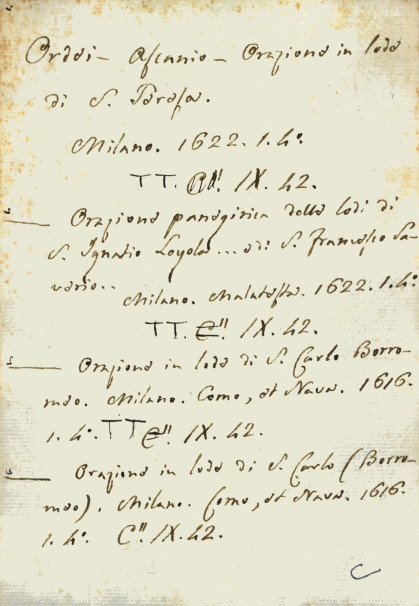 Ordei - Ascanio - Orazione in lode
di S. Teresa.
Milano. 1622. 1. 4°.
TT. IX. 42.
— Orazione panegirica delle lodi di
S. Ignatio Loyola... e di S. Francesco Sa-
verio.. Milano. Malatesta. 1622. 1. 4°.
TT. C". IX. 42.
— Orazione in lode di S. Carlo Borro-
meo. Milano. Como, et Nava. 1616.
1. 4°. TT C". IX. 42.
— Orazione in lode di S. Carlo (Borro-
meo). Milano. Como, et Nava. 1616.
1. 4°. C" IX. 42.